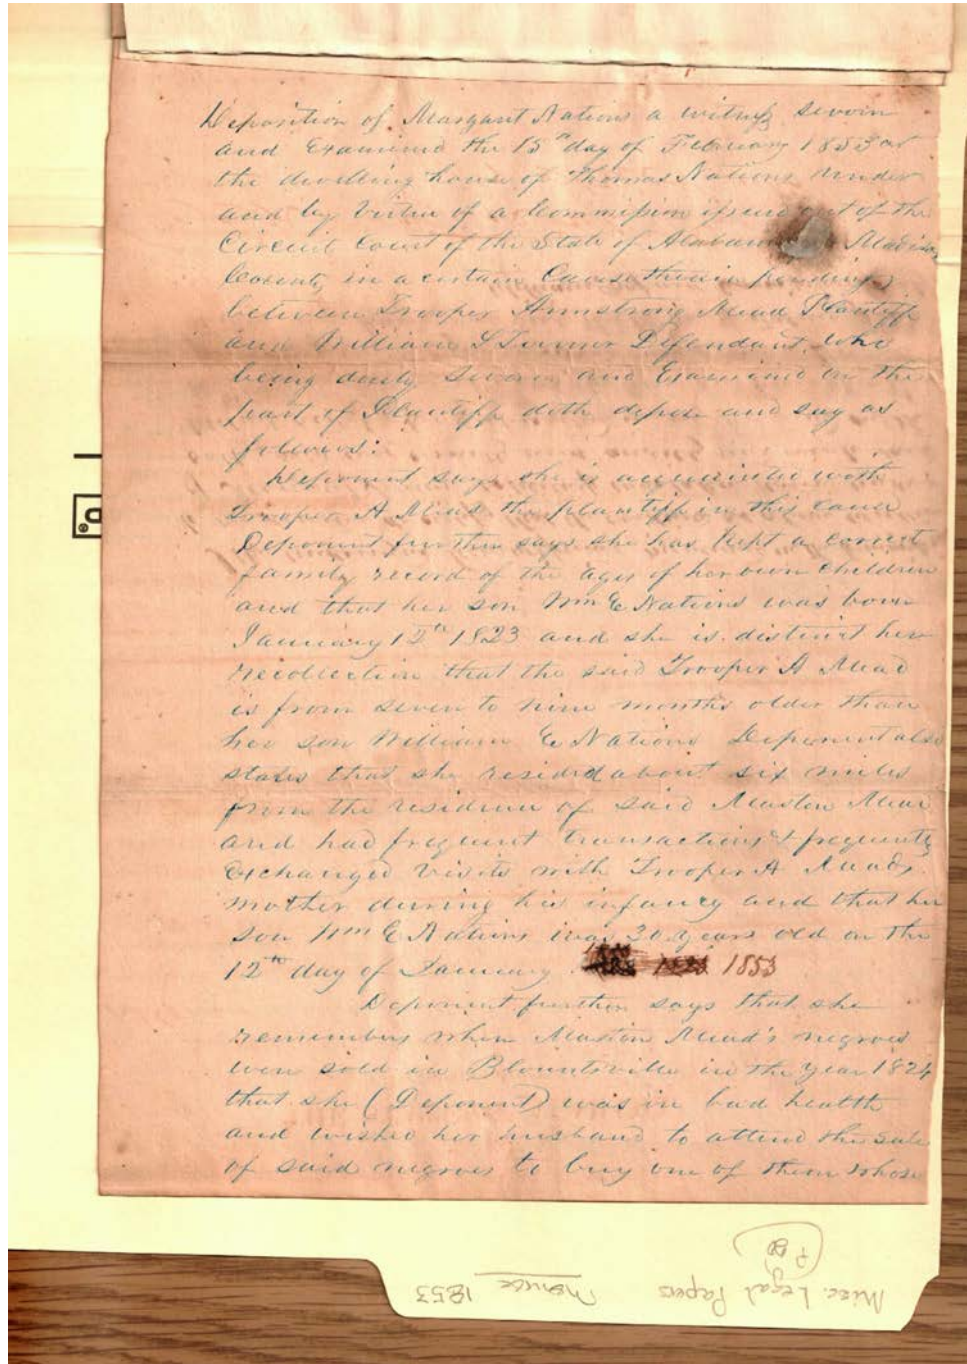 Deposition of Margaret Nations a witness sworn
and Examined the 15th day of February 1853 at
the dwelling house of Thomas Nations under
and by virtue of a Commission issued out of the
Circuit Court of the State of Alabama Madison
County in a certain Cause therein pending
between Trooper Armstrong Mead Plantiff
and William S Turner Defendant, who
being duly sworn and Examined on the
part of Plantiff doth depose and say as
follows:
Deponent says she is acquainted with
Trooper A Mead the plantiff in this cause
Deponent further says she has kept a correct
family record of the ages of her own children
and that her son Wm E Nations was born
January 12th 1823 and she is distinct her
recollection that the said Trooper A Mead
is from seven to nine months older than
her son William E Nations Deponent also
states that she resided about six miles
from the residence of said Maston Mead
and had frequent transactions & frequently
Exchanged visits with Trooper A Meads
mother during his infancy and that her
son Wm E Nations was 30 years old on the
12th day of January 1853
Deponent further says that she
remembers when Maston Mead's negroes
were sold in Blountsville in the year 1824
that she (Deponent) was in bad health
and wished her husband to attend the sale
of said negroes to buy one of them whose
Misc. Legal Papers 1853